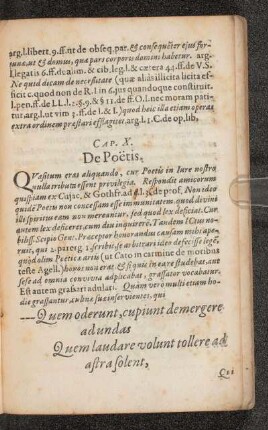 arg.l.libert.9.ff.ut de obseq.par.& consequẽter ejus for-
tunæ, ut & domus, quæ pars corporis domini habetur. arg.
l.legatis 6.ff.de alim. & cib.leg.l.& cætera 41.ff.de V.S.
Ne quid dicam de necessitate (quæ aliàs illicita licita ef-
ficit c.quod non de R.I.in 6.jus quandoque constituit.
l.pen.ff.de LL.l.2.§.9.& §11.de ff.O.I.nec moram pati-
tur, arg.l.ut vim 3.ff.de I.& I.) quod heic illa etiam operas
extra ordinem præstari efflagitet.arg.l.1.C.de op,lib,
CAP. X.
De Poëtis.
QUæsitum eras aliquando, cur Poetis in Iure nostro
nulla tributa essent privilegia. Respondit amicorum
quispiam ex Cujac, & Gothfr. ad d.l.3.C.de prof. Non ideo
quidẽ Poetis non concessam esse immunitatem, quod divini
illis spiritus eam non mereantur, sed quod lex deficiat. Cur
autem lex deficeret cum diu inquireret. Tandem I Ctus no-
biliss. Scipio Gen. Præceptor honorandus causam mihi ape-
ruit, qui 2. parerg. 1. scribit se arbitrari ideo defecisse legẽ,
quòd olim Poetice artis (ut Cato in carmine de moribus
teste Agell.) honos non erat & si quis in eare studebat, aut
sese ad omnia convivia adplicabat, grassator vocabatur.
Est autem grassari adulari. Quàm verò multi etiam ho-
die grassantur, culine sucinser vientes, qui
---Quem oderunt, cupiunt demergere
ad undas
Quem laudare volunt tollere ad
astra solent,
Qui